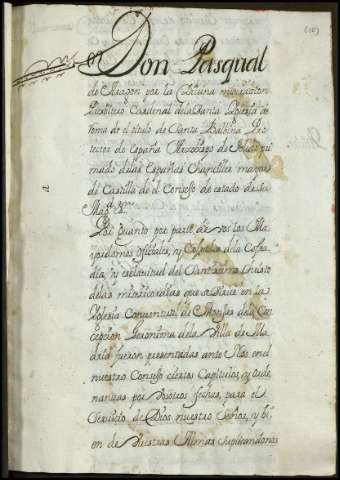 Don Pasqual
de Aragon por la Divina miseration
Presbitero Cardenal de la Santa Yglesia de
Roma de el titulo de Santa Balbina Pro
tector de España Arzobispo de Toledo pri
mado de las Españas Chanciller mayor
de Castilla de el Consejo de estado de su
Magd. &c.
Por quanto por parte de vos los Ma
yordomos oficiales, y Cofrades de la Cofra
dia, y esclavitud del Santissimo Christo
de las misericordias que se sirve en la
Yglesia Conventual de Monjas de la Con
cepcion Geronima de la Villa de Ma
drid fueron presentadas ante Nos en el
nuestro Consejo ciertos Capitulos, y orde
nanzas por vosotros fechas, para el
Servicio de Dios nuestro Señor, y bi
en de vuestras Almas suplicandonos